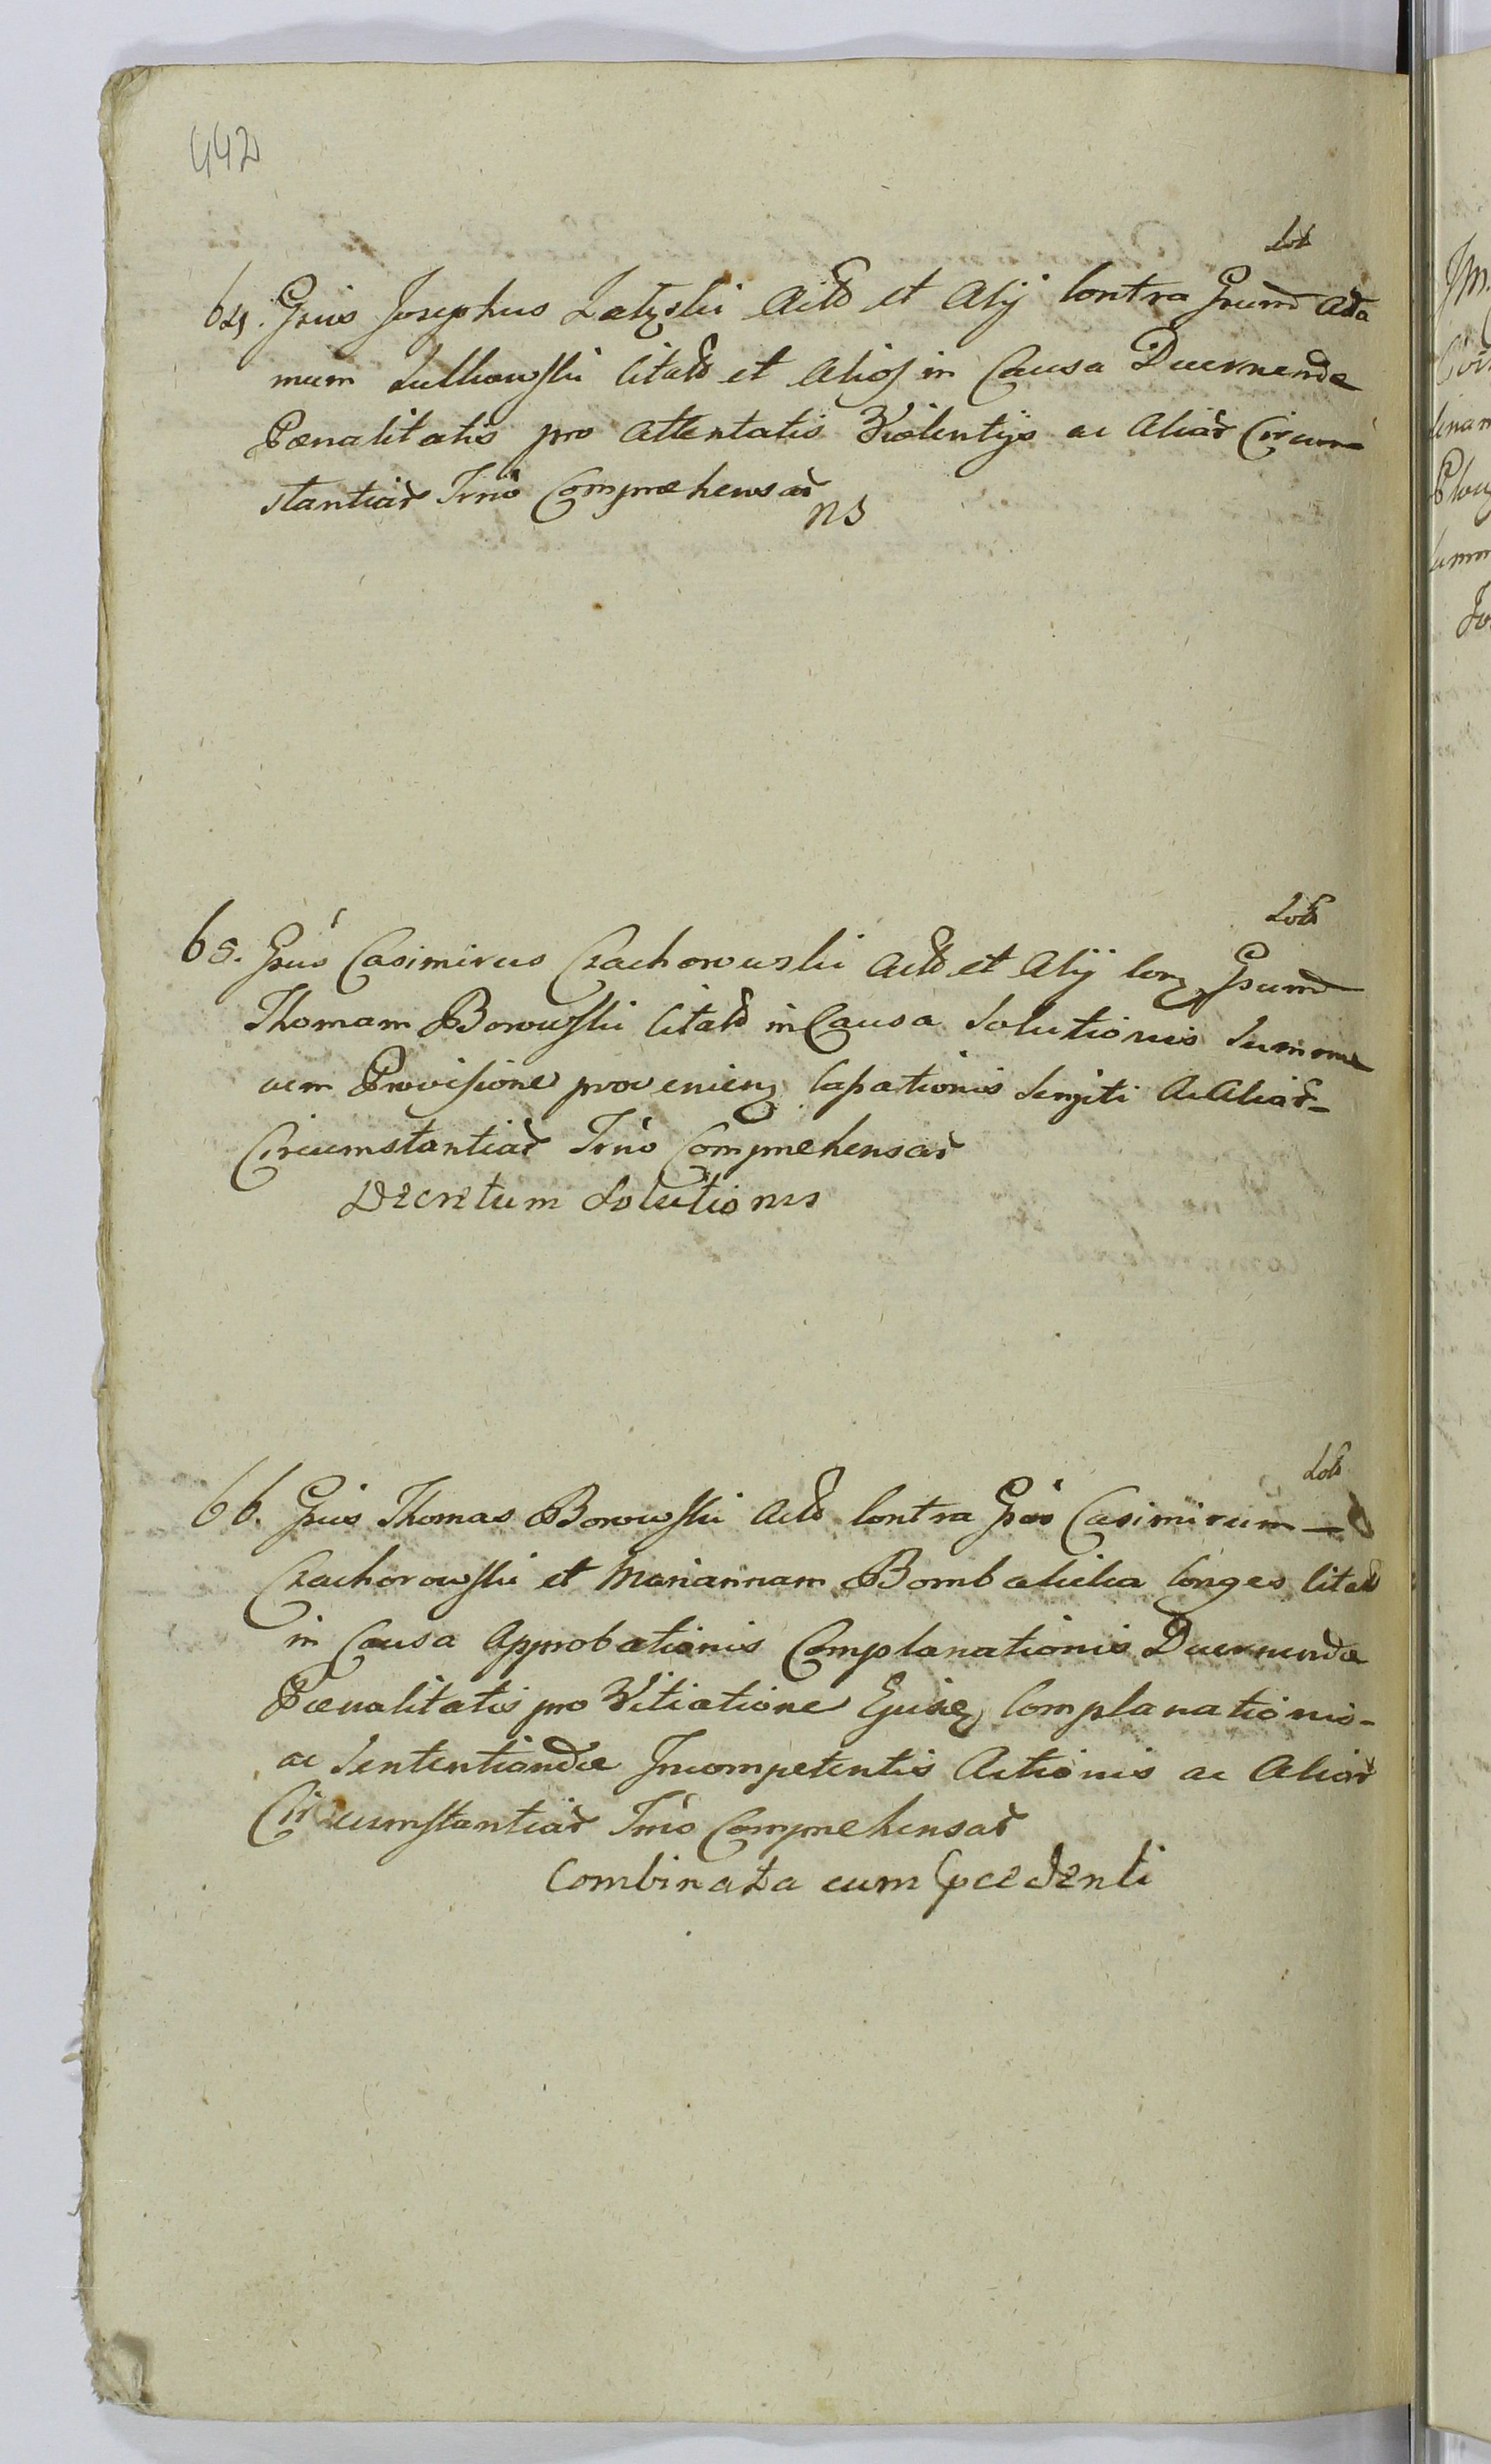 442
64. Grus Josephus Zatyski Actb et Alij Contra Grum Ada
mum Sulkowski Citatb et Alios in Causa Decernendæ
Pænalitatis pro Attentatis Violentijs ac Aliar Circum-
stantiar Trno Compræhensar
NS
65. Grus Casimirus Czachorowski Actb et Alij Con Grum
Thomam Borowski Citatb in Causa Solutionis Summæ
cum Provisione provenien Cassationis Scripti Ac Aliar-
Circumstantiar Trno Comprehensar
Decretum Solutionis
66. Grus Thomas Borowski Actb Contra Gros Casimirum
Czachorowski et Mariannam Bombalicka Conges Citatb
in Causa Approbationis Complanationis Decernendæ
Pænalitatis pro Vitiatione Ejusq Complanationis-
ac Sententiandæ Incompetentis Actionis ac Aliar
Circumstantiar Trno Comprehensar
Combinata cum pcedenti